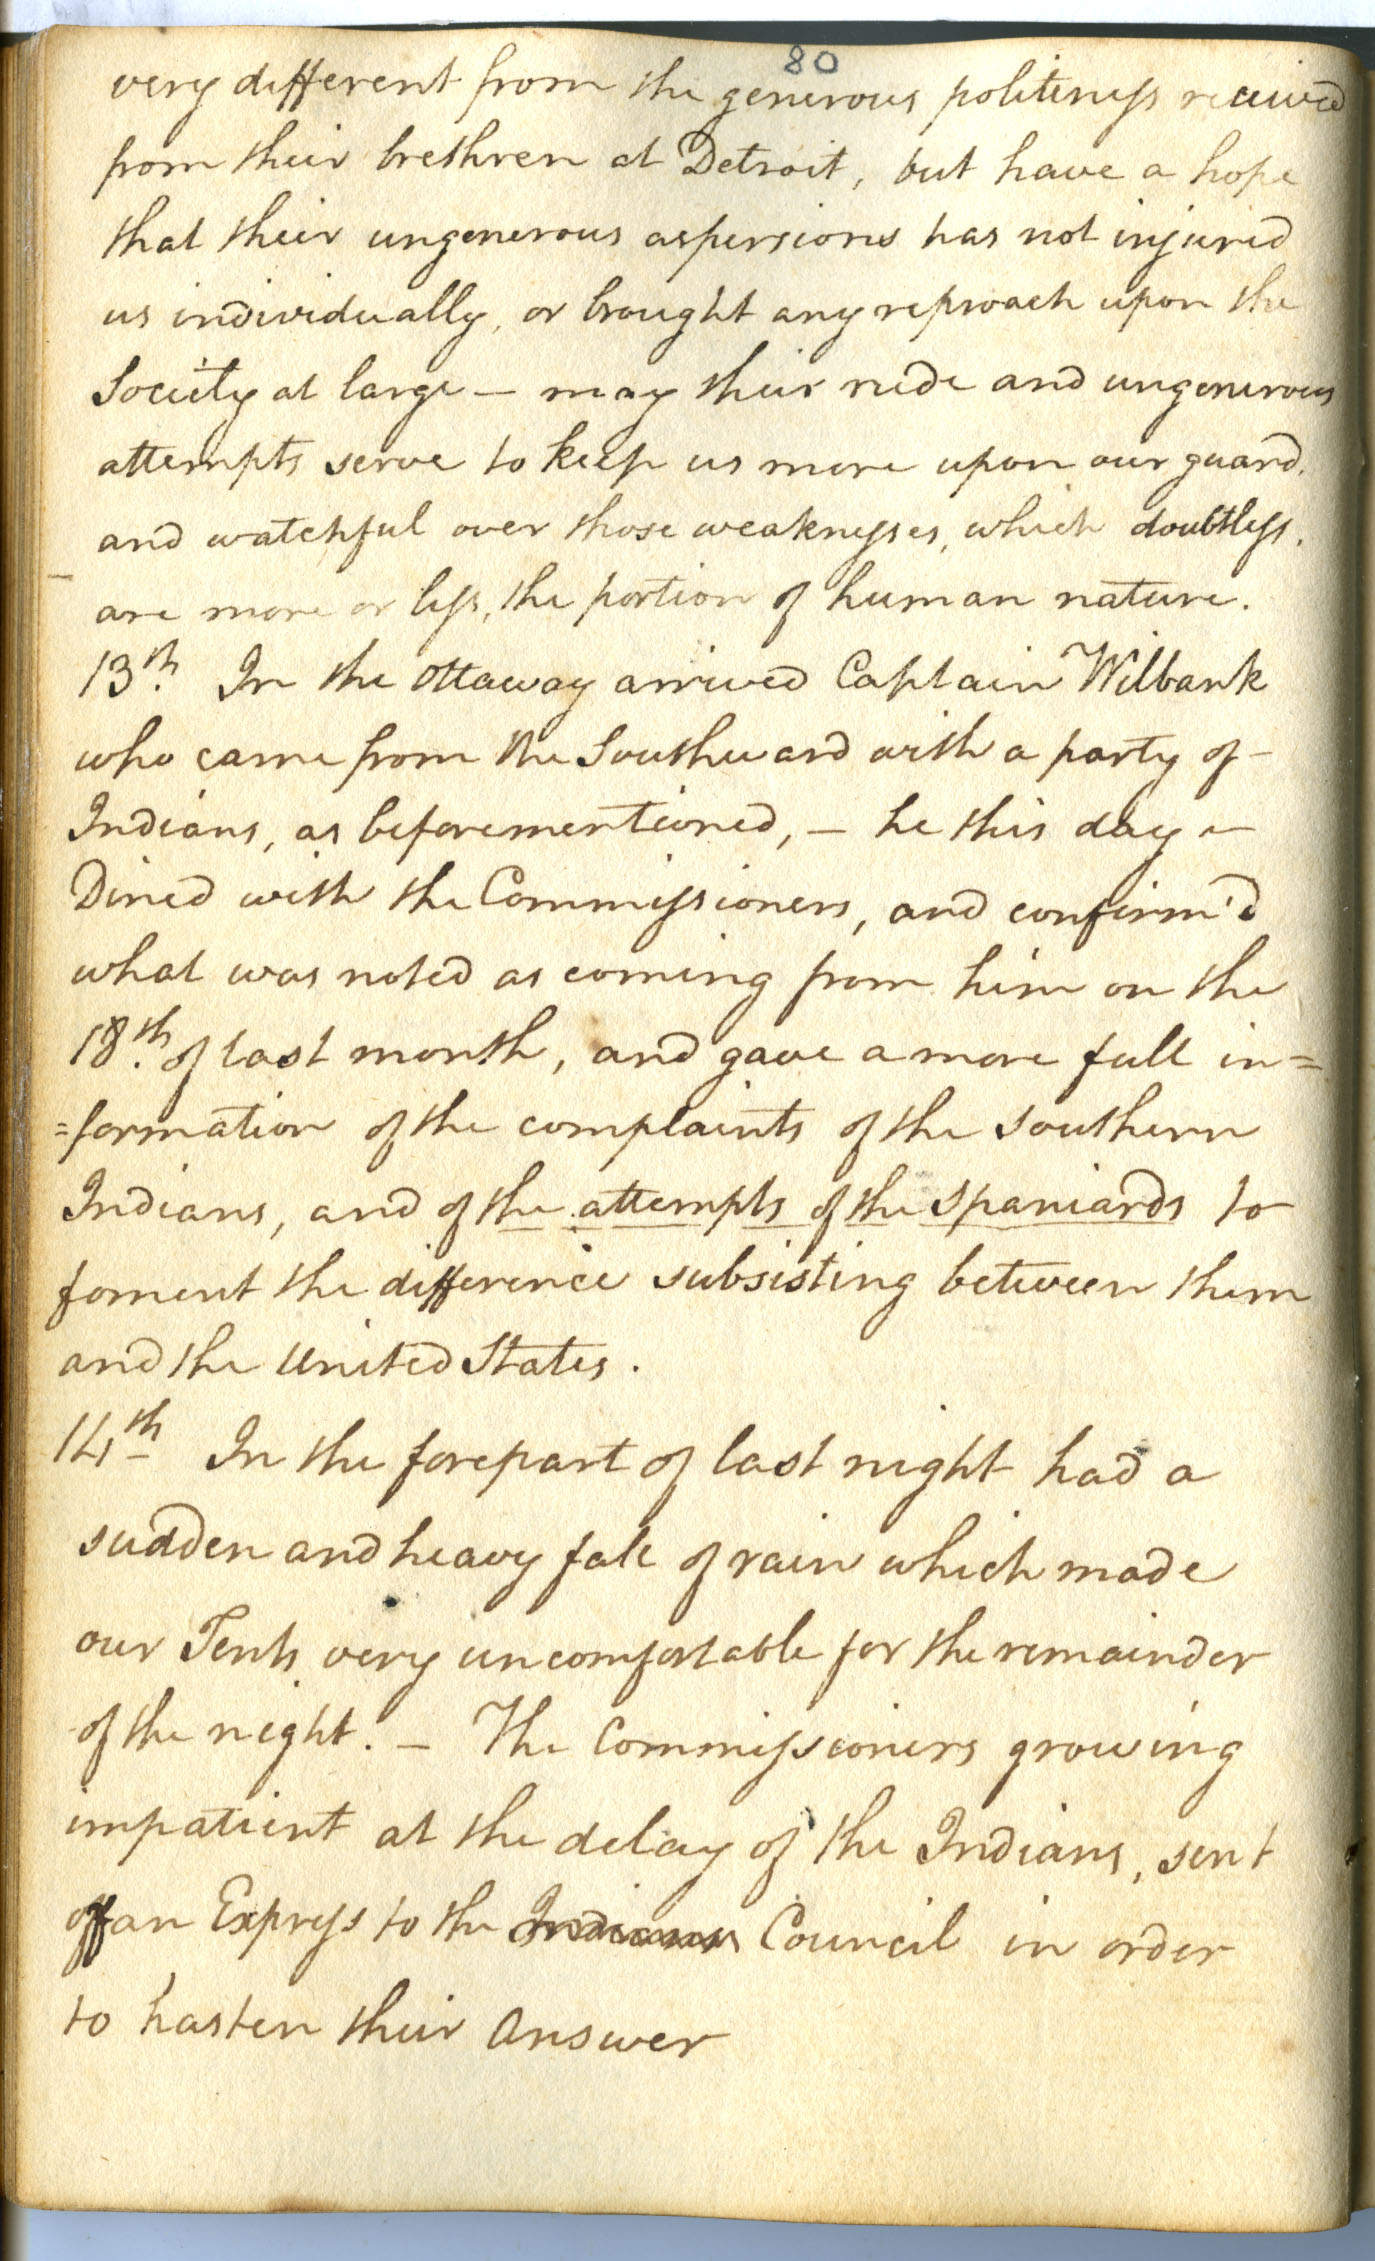 80
very different from the generous politeness received
from their brethren at Detroit, but have a hope
that their ungenerous aspersions has not injured
us individually, or brought any reproach upon the
Society at large — may their rude and ungenerous
attempts serve to keep us more upon our guard,
and watchful over those weaknesses, which doubtless,
are more or less, the portion of human nature.
13th. In the Ottaway arrived Captain Wilbank
who came from the Southward with a party of -
Indians, as beforementioned, — he this day -
Dined with the Commissioners, and confirm'd
what was noted as coming from him on the
18th. of last month, and gave a more full in=
=formation of the complaints of the Southern
Indians, and of the attempts of the Spaniards to
foment the difference subsisting between them
and the United States.
14th In the forepart of last night had a
sudden and heavy fall of rain which made
our Tents very uncomfortable for the remainder
of the night. — The Commissioners growing
impatient at the delay of the Indians, sent
off an Express to the Indians Council in order
to hasten their answer